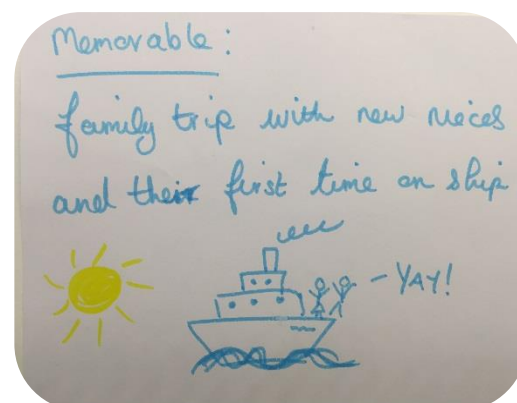 Memorable:
family trip with new nieces
and their first time on ship
- YAY!